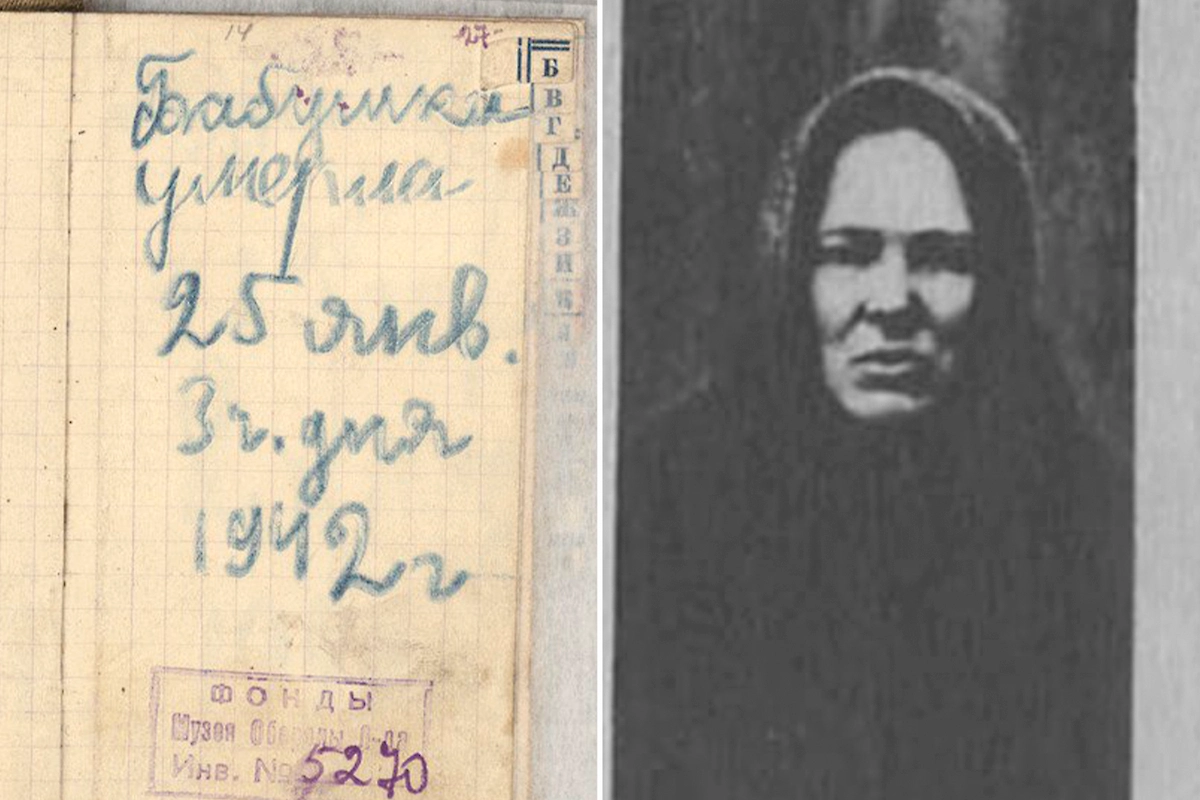 14
27
Бабушка
умерла
25 янв.
3 ч. дня
1942 г
Б
В
Г
Д
Е
Ж
З
И
К
ФОНДЫ
Музея Обороны Л-да
Инв. № 5270